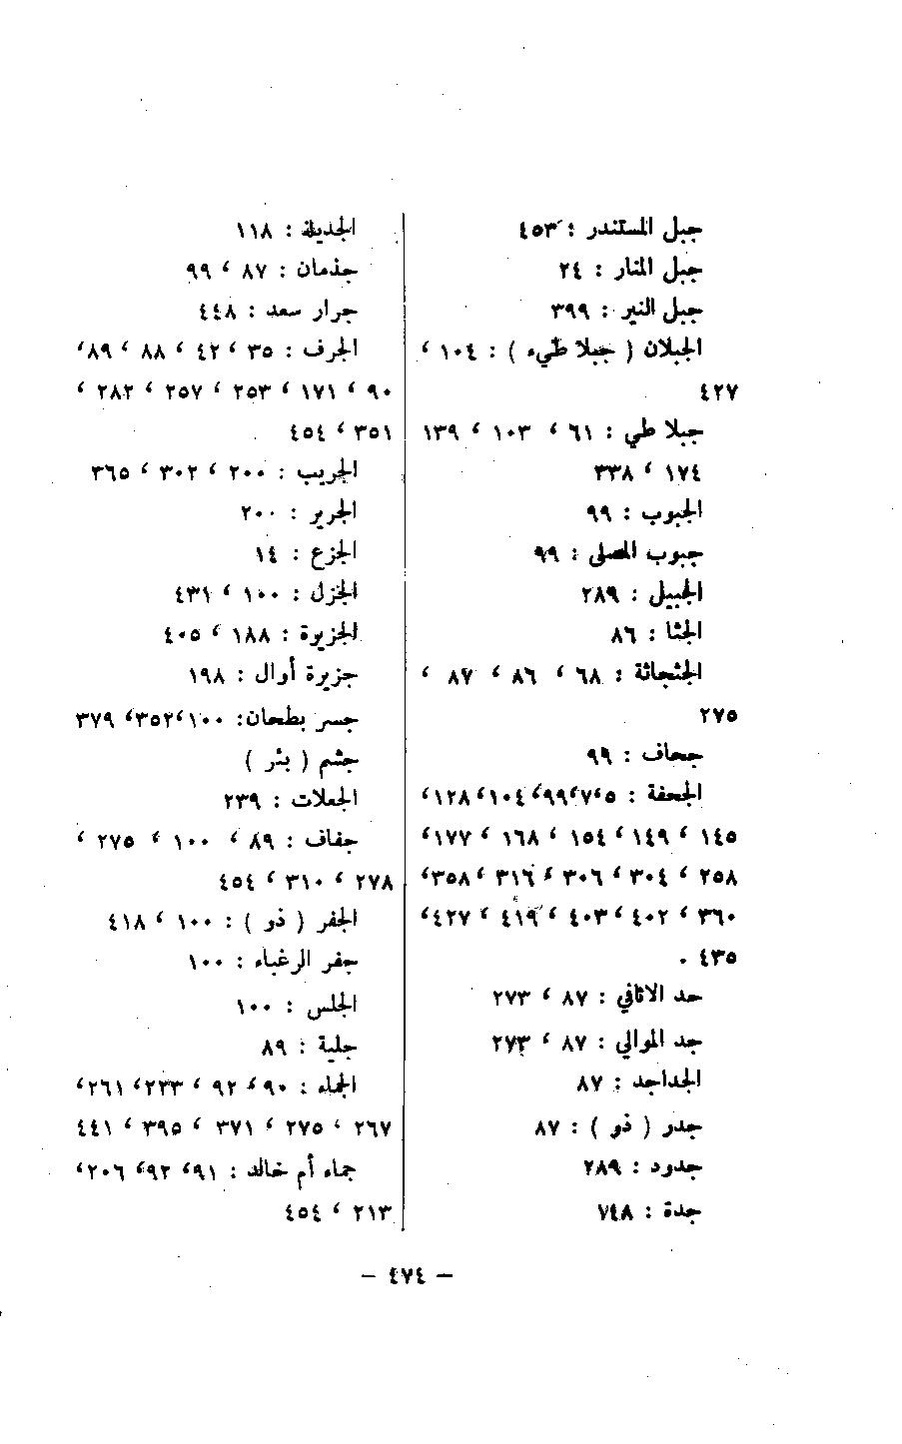 جبل المستندر : ٤٥٣
جبل المنار : ٢٤
جبل النير : ٣٩٩
الجبلان ( جبلا طيء ) : ١٠٤ ،
٤٢٧
جبلا طي : ٦١ ، ١٠٣ ، ١٣٩
١٧٤ ، ٣٣٨
الجبوب : ٩٩
جبوب المصلى : ٩٩
الجبيل : ٢٨٩
الجثا : ٨٦
الجثجاثة : ٦٨ ، ٨٦ ، ٨٧ ،
٢٧٥
جحاف : ٩٩
الجحفة : ٥،٧،٩٩،١٠٤،١٢٨،
١٤٥ ، ١٤٩ ، ١٥٤ ، ١٦٨ ، ١٧٧،
٢٥٨ ، ٣٠٤ ، ٣٠٦ ، ٣١٦ ، ٣٥٨،
٣٦٠ ، ٤٠٢ ، ٤٠٣ ، ٤١٩ ، ٤٢٧،
٤٣٥ .
حد الاثافي : ٨٧ ، ٢٧٣
جد الموالي : ٨٧ ، ٢٧٣
الجداجد : ٨٧
جدر ( ذو ) : ٨٧
جدود : ٢٨٩
جدة : ٧٤٨
الجديلة : ١١٨
جذمان : ٨٧ ، ٩٩
جرار سعد : ٤٤٨
الجرف : ٣٥ ، ٤٢ ، ٨٨ ، ٨٩،
٩٠ ، ١٧١ ، ٢٥٣ ، ٢٥٧ ، ٢٨٢ ،
٣٥١ ، ٤٥٤
الجريب : ٢٠٠ ، ٣٠٢ ، ٣٦٥
الجرير : ٢٠٠
الجزع : ١٤
الجزل : ١٠٠ ، ٤٣١
الجزيرة : ١٨٨ ، ٤٠٥
جزيرة أوال : ١٩٨
جسر بطحان: ١٠٠،٣٥٢، ٣٧٩
جشم ( بئر )
الجعلات : ٢٣٩
جفاف : ٨٩ ، ١٠٠ ، ٢٧٥ ،
٢٧٨ ، ٣١٠ ، ٤٥٤
الجفر ( ذو ) : ١٠٠ ، ٤١٨
جفر الرغباء : ١٠٠
الجلس : ١٠٠
جلية : ٨٩
الجماء : ٩٠، ٩٢ ، ٢٣٣، ٢٦١،
٢٦٧ ، ٢٧٥ ، ٣٧١ ، ٣٩٥ ، ٤٤١
جماء أم خالد : ٩١، ٩٢، ٢٠٦،
٢١٣ ، ٤٥٤
– ٤٧٤ –